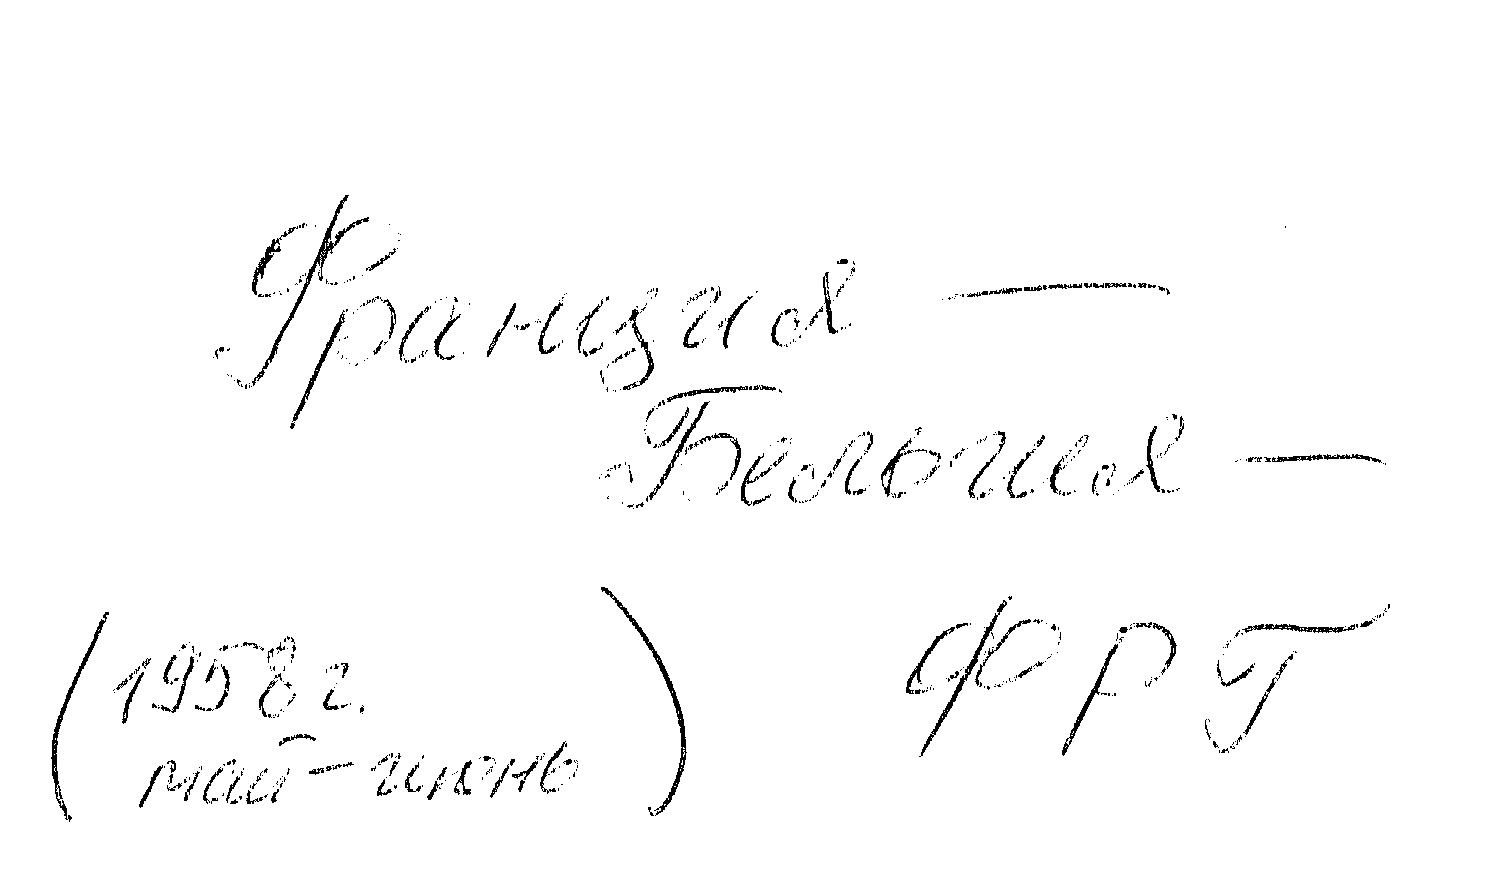 Франция —
Бельгия —
ФРГ
(1958 г.
май-июнь)